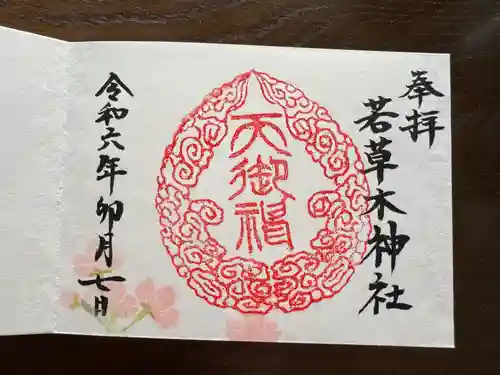 奉拝
若草木神社
天御祖
令和六年卯月七日